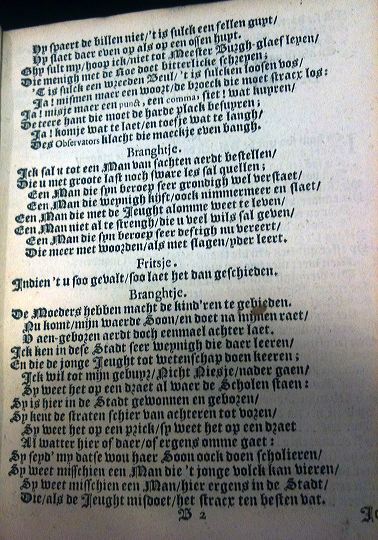 Hy spaert de billen niet/'t is sulck een fellen gupt/
Hy slaet daer even op als op een ossen hupt.
Ghy sult my/hoop ick/niet tot Meester Burgh-glaef leyen/
Die menigh met de Roe doet bitterlicke schreyen;
'T is sulck een wreeden Beul/'t is sulcken loosen vos/
Ja! mismen maer een woort/de broeck die moet stracx los:
Ja! misje maer een punct, een comma; siet! wat kuyren/
De teere hant die moet de harde plack besuyren;
Ja! komje wat te laet/en toefje wat te langh/
Des Observators klacht die maeckje even bangh.
Branghtje.
Ick sal u tot een Man van sachten aerdt bestellen/
Die u met groote last noch sware les sal quellen;
Een Man die syn beroep seer grondigh wel verstaet/
Een Man die weynigh kijft/oock nimmermeer en slaet/
Een Man die met de Jeught alomme weet te leven/
Een Man niet al te strengh/die u veel wils sal geven/
Een Man die syn beroep seer deftigh nu vereert/
Die meer met woorden/als met slagen/yder leert.
Fritsje.
Indien 't u soo gevalt/soo laet het dan geschieden.
Branghtje.
De Moeders hebben macht de kind'ren te gebieden.
Nu komt/mijn waerde Soon/en doet na mijnen raet/
U aen-geboren aerdt doch eenmael achter laet.
Ick ken in dese Stadt seer weynigh die daer leeren/
En die de jonge Jeught tot wetenschap doen keeren;
Ick wil tot mijn gebuyr/Nicht Niesje/nader gaen/
Sy weet het op een draet al waer de Scholen staen:
Sy is hier in de Stadt gewonnen en geboren/
Sy kent de straten schier van achteren tot voren/
Sy weet het op een prick/sy weet het op een draet
Al watter hier of daer/of ergens omme gaet:
Sy seyd' my datse wou haer Soon oock doen scholieren/
Sy weet misschien een Man die 't jonge volck kan vieren/
Sy weet misschien een Man/hier ergens in de Stadt/
Die/als de Jeught misdoet/het stracx ten besten vat.
B 2